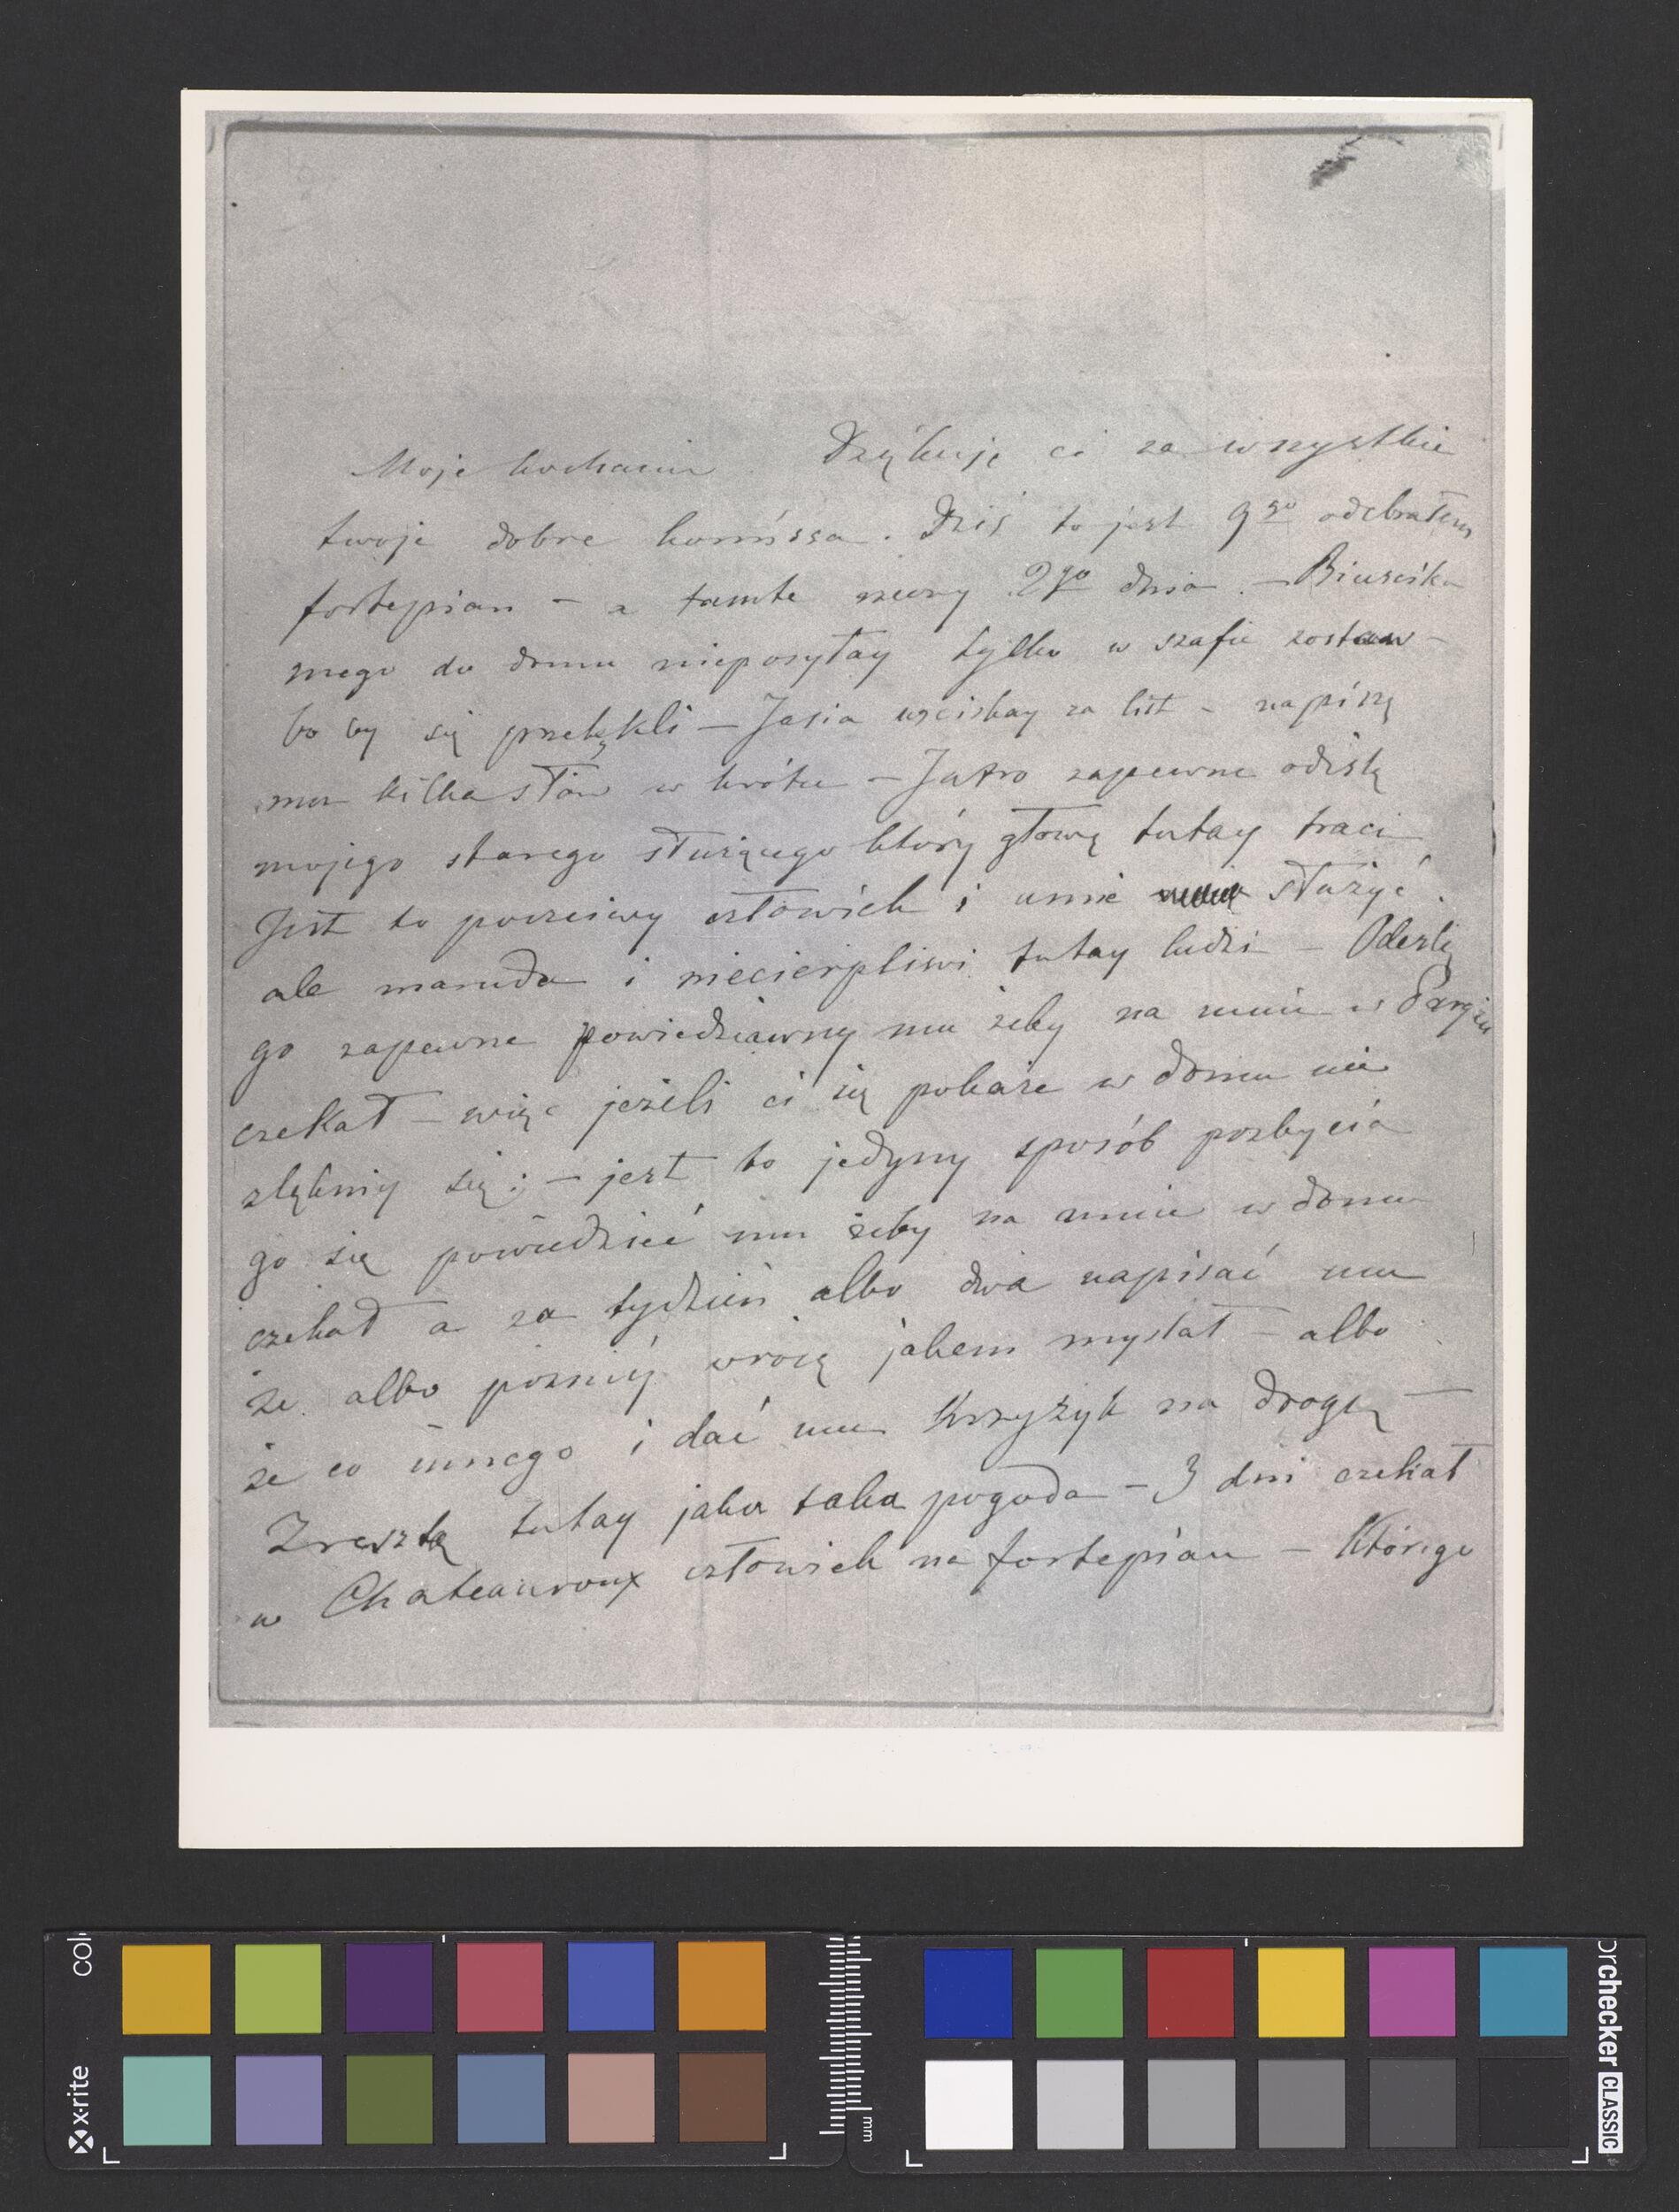 Moje kochanie. Dzękuję ci za wszystkie
twoje dobre komissa. Dziś to jest 9go odebrałem
fortepian – a tamte rzeczy 2go dnia. – Biuścika
mego do domu nieposyłay tylko w szafie zostaw –
bo by się przelękli – Jasia uściskay za list – napiszę
mu kilka słów w krótce – Jutro zapewne odiślę
mojego starego służącego który głowę tutay traci
Jest to poczciwy człowiek i umie służyć.
ale maruda i niecierpliwi tutay ludzi – Odeślę
go zapewne powiedziawszy mu żeby na mnie w Paryżu
czekał – więc jeżeli ci się pokaże w domu nie
zlęknij się; – jest to jedyny sposób pozbycia
go się powiedzieć mu żeby na mnie w domu
czekał a za tydzień albo dwa napisać mu
że albo pozniéj wrócę jakem myslał – albo
że co innego i dać mu Krzyżyk na drogę –
Zresztą tutay jaka taka pogoda – 3 dni czekał
w Chateauroux człowiek na fortepian – Którego
x-rite
mm
orchecker CLASSIC